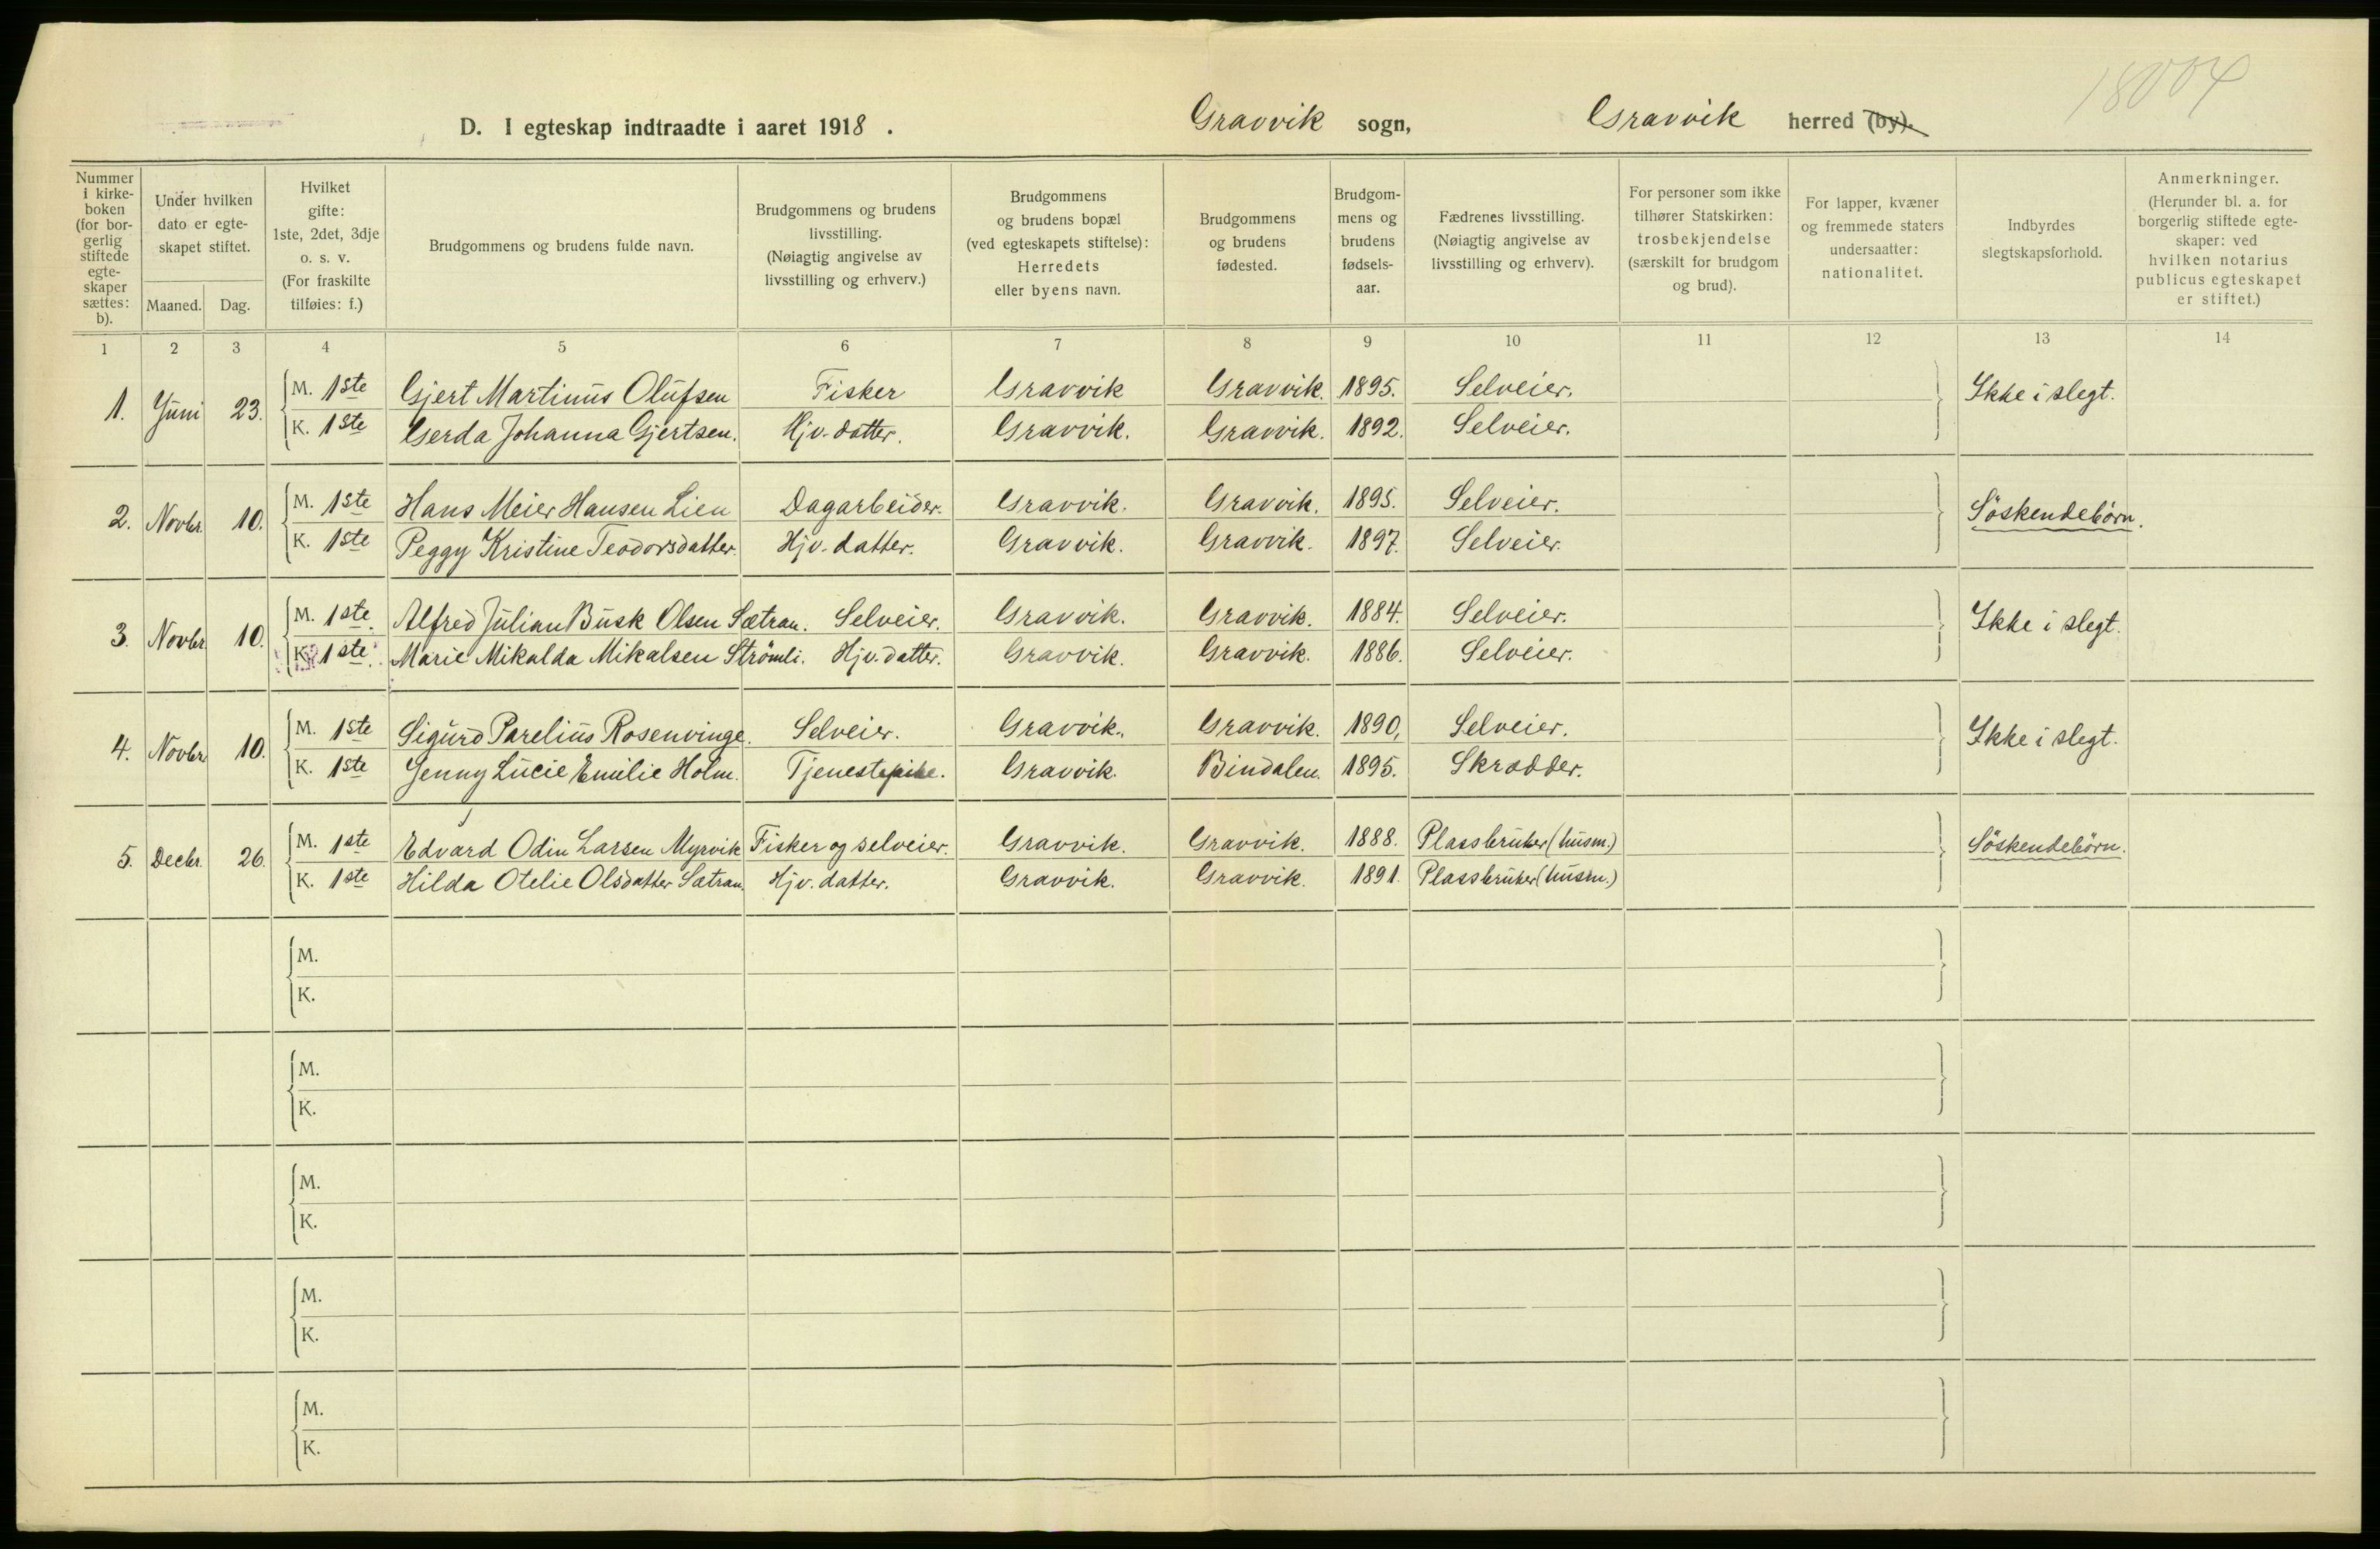 18004
D. I egteskap indtraadte i aaret 1918. Gravvik sogn, Gravvik herred (by).
Nummer i kirke-boken (for bor-gerlig stiftede egte-skaper sættes: b).
Under hvilken dato er egte-skapet stiftet.
Maaned. Dag.
Hvilket gifte: 1ste, 2det, 3dje o. s. v. (For fraskilte tilføies: f.)
Brudgommens og brudens fulde navn.
Brudgommens og brudens livsstilling. (Nøiagtig angivelse av livsstilling og erhverv.)
Brudgommens og brudens bopæl (ved egteskapets stiftelse): Herredets eller byens navn.
Brudgommens og brudens fødested.
Brudgom-mens og brudens fødsels-aar.
Fædrenes livsstilling. (Nøiagtig angivelse av livsstilling og erhverv).
For personer som ikke tilhører Statskirken: trosbekjendelse (særskilt for brudgom og brud).
For lapper, kvæner og fremmede staters undersaatter: nationalitet.
Indbyrdes slegtskapsforhold.
Anmerkninger. (Herunder bl. a. for borgerlig stiftede egte-skaper: ved hvilken notarius publicus egteskapet er stiftet.)
1 2 3 4 5 6 7 8 9 10 11 12 13 14
1. Juni 23. M. 1ste Gjert Martinus Olufsen Fisker Gravvik Gravvik. 1895. Selveier. Ikke i slegt.
K. 1ste Gerda Johanna Gjertsen. Hjv. datter. Gravvik. Gravvik. 1892. Selveier.
2. Novbr. 10. M. 1ste Hans Meier Hansen Lien Dagarbeider. Gravvik. Gravvik. 1895. Selveier. Söskendebörn.
K. 1ste Peggy Kristine Teodorsdatter. Hjv. datter. Gravvik. Gravvik. 1897. Selveier.
3. Novbr. 10. M. 1ste. Alfred Julian Busk Olsen Sætran. Selveier. Gravvik. Gravvik. 1884. Selveier. Ikke i slegt.
K. 1ste. Marie Mikalda Mikalsen Strömli. Hjv. datter. Gravvik. Gravvik. 1886. Selveier.
4. Novbr. 10. M. 1ste Sigurd Parelius Rosenvinge. Selveier. Gravvik. Gravvik. 1890, Selveier. Ikke i slegt.
K. 1ste Jenny Lucie Emilie Holm. Tjenestepike. Gravvik. Bindalen. 1895. Skrædder.
5. Decbr. 26. M. 1ste Edvard Odin Larsen Myrvik Fisker og selveier. Gravvik. Gravvik. 1888. Plassbruker (husm.) Söskendebörn.
K. 1ste Hilda Otelie Olsdatter Sætran. Hjv. datter. Gravvik. Gravvik. 1891. Plassbruker (husm.)
M.
K.
M.
K.
M.
K.
M.
K.
M.
K.